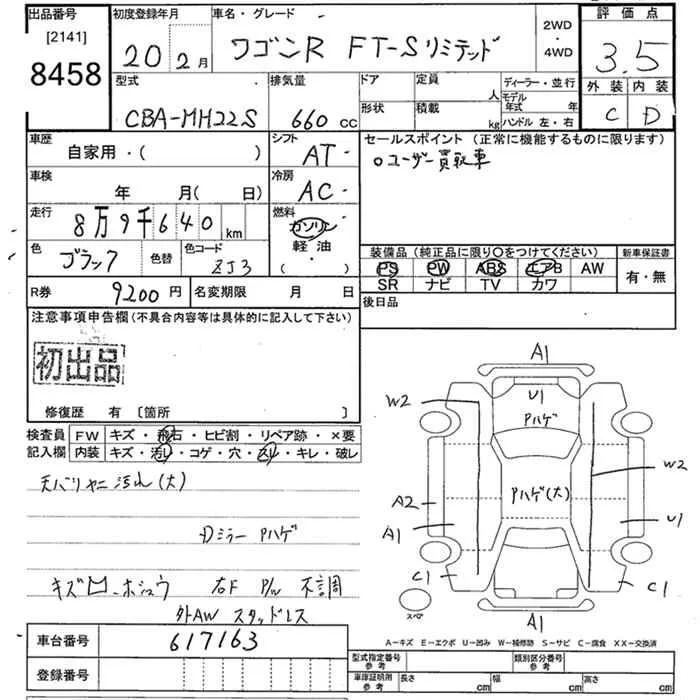 出品番号 初度登録年月 車名・グレード 2WD・4WD 評価点
[2141]
8458
20年 2月 ワゴンR FT-Sリミテッド 3.5
外装 内装
C D
型式 排気量 ドア 定員 人 ディーラー・並行
CBA-MH22S 660 CC 形状 積載 kg モデル年式 年
ハンドル 左・右
車歴 シフト セールスポイント (正常に機能するものに限ります)
自家用・( ) AT ○ユーザー買取車
車検 冷房
年 月(日) AC
走行 燃料
8万9千640 km ガソリン
軽・油
( ・ )
色 ブラック 色替 色コード ZJ3
装備品 (純正品に限り○をつけてください) 新車保証書
PS PW ABS エアB AW 有・無
SR ナビ TV カワ
R券 9200円 名変期限 月 日 後日品
注意事項申告欄(不具合内容等は具体的に記入して下さい)
初出品
修復歴 有 [箇所 ]
検査員 FW キズ・飛石・ヒビ割・リペア跡・×要
記入欄 内装 キズ・汚レ・コゲ・穴・スレ・キレ・破レ
天バリヤニ汚れ(大)
Dミラー Pハゲ
右F P/W 不調
外AW スタッドレス
A1
U1
W2
Pハゲ
W2
Pハゲ(大)
A2
A1
U1
C1
C1
スペア
A1
A-キズ E-エクボ U-凹み W-補修跡 S-サビ C-腐食 XX-交換済
車台番号 617163
登録番号
型式指定番号 参考 類別区分番号 参考
車庫証明用 参考 長さ cm 幅 cm 高さ cm